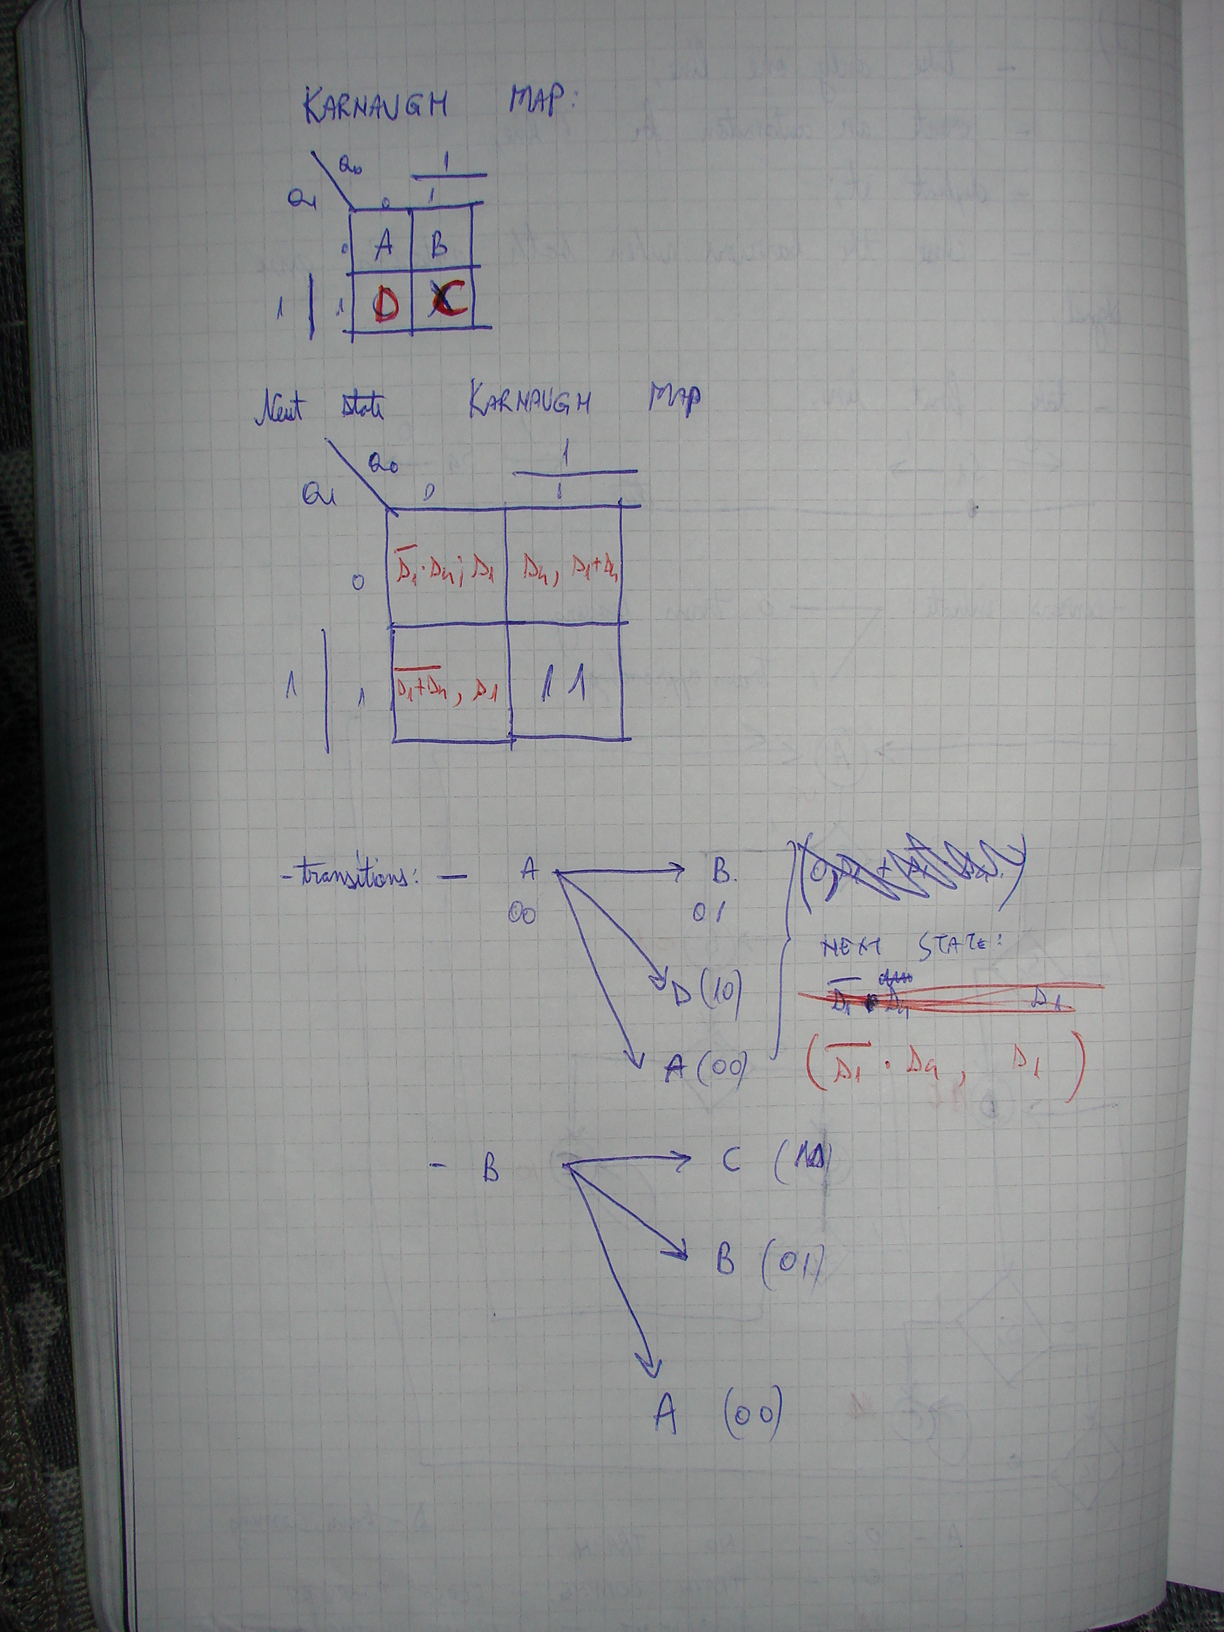 KARNAUGH MAP:
Q0 1
Q1 0 1
0 A B
1 1 D C
Next state KARNAUGH MAP
Q0 1
Q1 0 1
0 D̅1̅·D4; D1 D4, D1+D4
1 1 D̅1̅+̅D̅4̅, D1 11
-transitions: - A B.
00 01
NEXT STATE:
D (10)
A (00) (D̅1̅ · D4, D1)
- B C
B (01)
A (00)